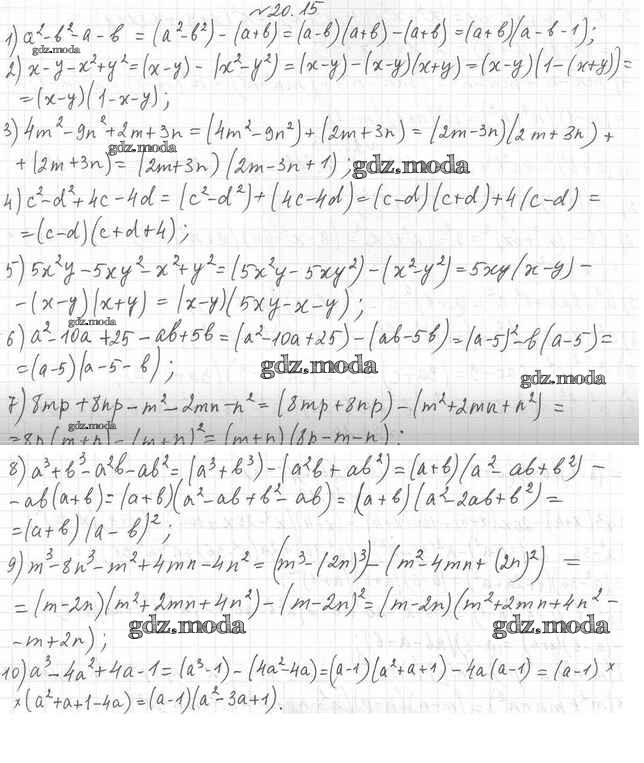 №20.15
1) a²-b²-a-b = (a²-b²)-(a+b)=(a-b)(a+b)-(a+b)=(a+b)(a-b-1);
gdz.moda
2) x-y-x²+y²=(x-y)-(x²-y²)=(x-y)-(x-y)(x+y)=(x-y)(1-(x+y))=
=(x-y)(1-x-y);
3) 4m²-9n²+2m+3n=(4m²-9n²)+(2m+3n)=(2m-3n)(2m+3n)+
gdz.moda
+(2m+3n)=(2m+3n)(2m-3n+1);
gdz.moda
4) c²-d²+4c-4d=(c²-d²)+(4c-4d)=(c-d)(c+d)+4(c-d)=
=(c-d)(c+d+4);
5) 5x²y-5xy²-x²+y²=(5x²y-5xy²)-(x²-y²)=5xy(x-y)-
-(x-y)(x+y)=(x-y)(5xy-x-y);
gdz.moda
6) a²-10a+25-ab+5b=(a²-10a+25)-(ab-5b)=(a-5)²-b(a-5)=
=(a-5)(a-5-b);
gdz.moda
gdz.moda
7) 8mp+8np-m²-2mn-n²=(8mp+8np)-(m²+2mn+n²)=
gdz.moda
=8p(m+n)-(m+n)²=(m+n)(8p-m-n);
8) a³+b³-a²b-ab²=(a³+b³)-(a²b+ab²)=(a+b)(a²-ab+b²)-
-ab(a+b)=(a+b)(a²-ab+b²-ab)=(a+b)(a²-2ab+b²)=
=(a+b)(a-b)²;
9) m³-8n³-m²+4mn-4n²=(m³-(2n)³)-(m²-4mn+(2n)²)=
=(m-2n)(m²+2mn+4n²)-(m-2n)²=(m-2n)(m²+2mn+4n²-
-m+2n);
gdz.moda
gdz.moda
10) a³-4a²+4a-1=(a³-1)-(4a²-4a)=(a-1)(a²+a+1)-4a(a-1)=(a-1)×
×(a²+a+1-4a)=(a-1)(a²-3a+1).